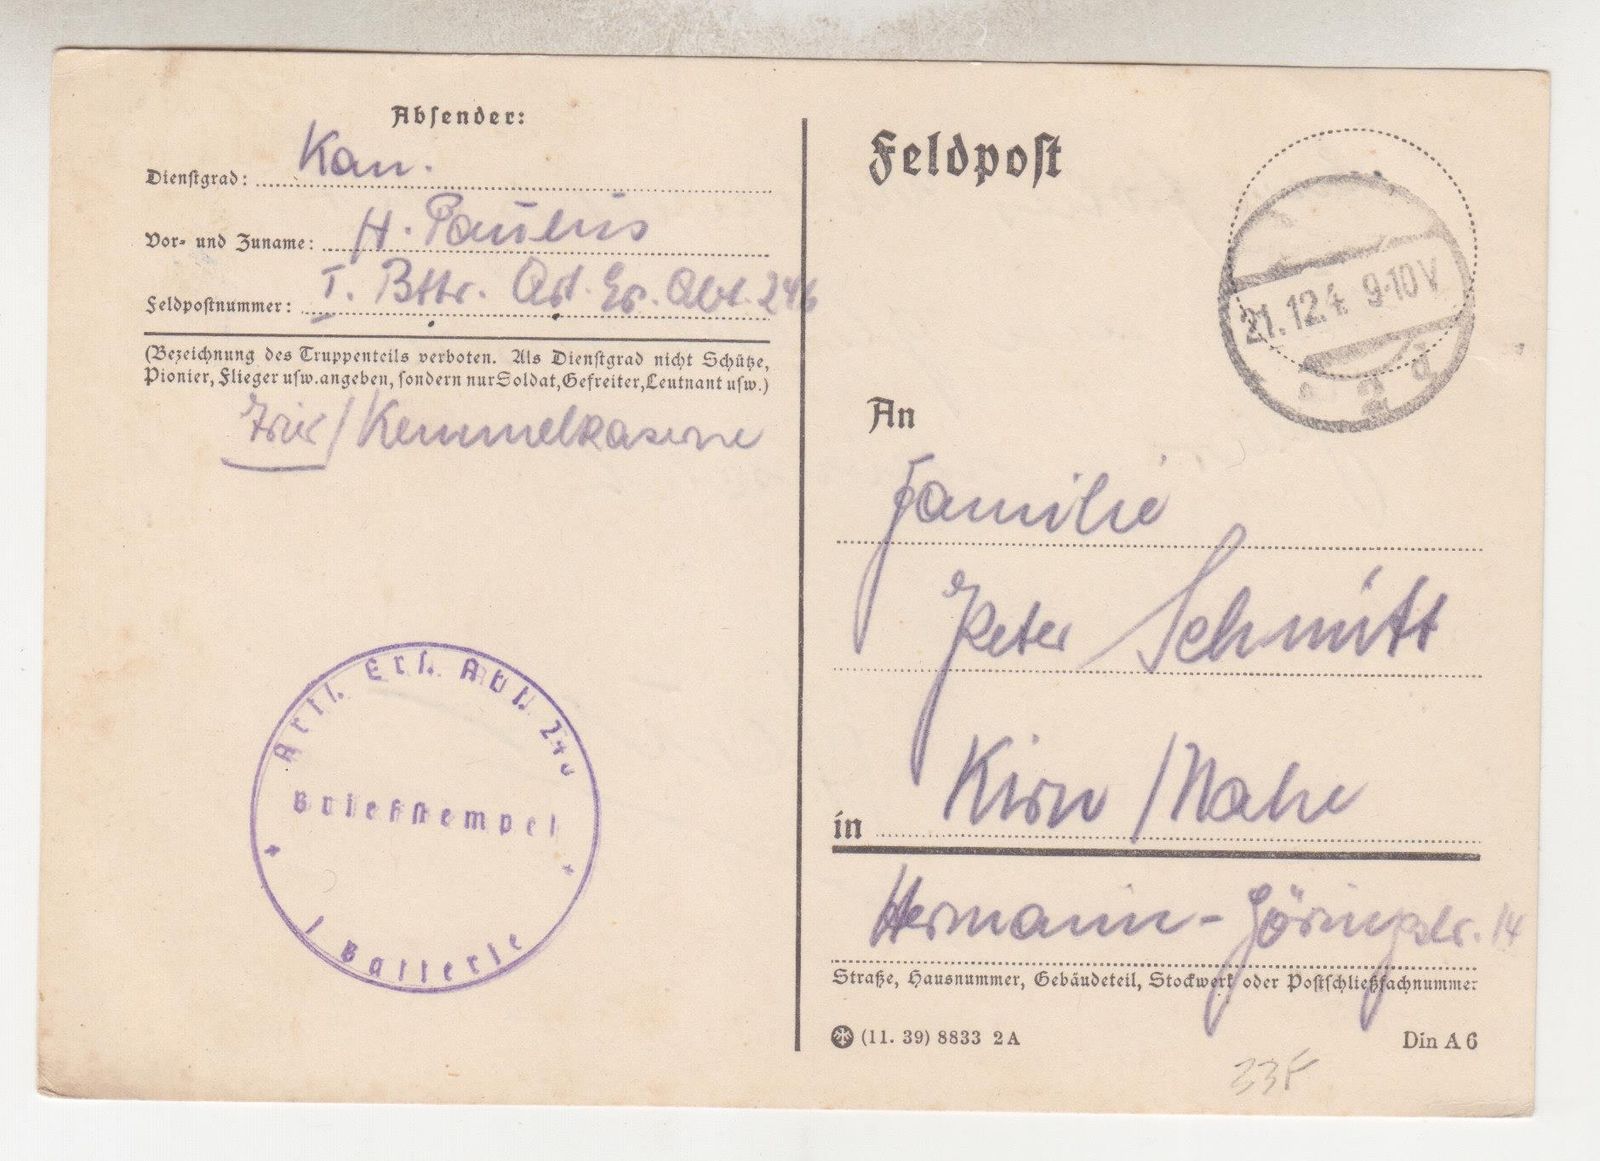 Absender:
Dienstgrad: Kan.
Vor- und Zuname: H. Paulus
Feldpostnummer: I. Bttr. Art. Ers. Abt. 246
(Bezeichnung des Truppenteils verboten. Als Dienstgrad nicht Schütze,
Pionier, Flieger usw. angeben, sondern nur Soldat, Gefreiter, Leutnant usw.)
Trier/Kemmelkaserne
Artl. Ers. Abt. 246
Briefstempel
1 Batterie
Feldpost
21.12.4 9-10V
An
Familie
Peter Schmitt
in Kirn/Nahe
Hermann-Göringstr. 14
Straße, Hausnummer, Gebäudeteil, Stockwerk oder Postschließfachnummer
(11. 39) 8833 2 A
Din A 6